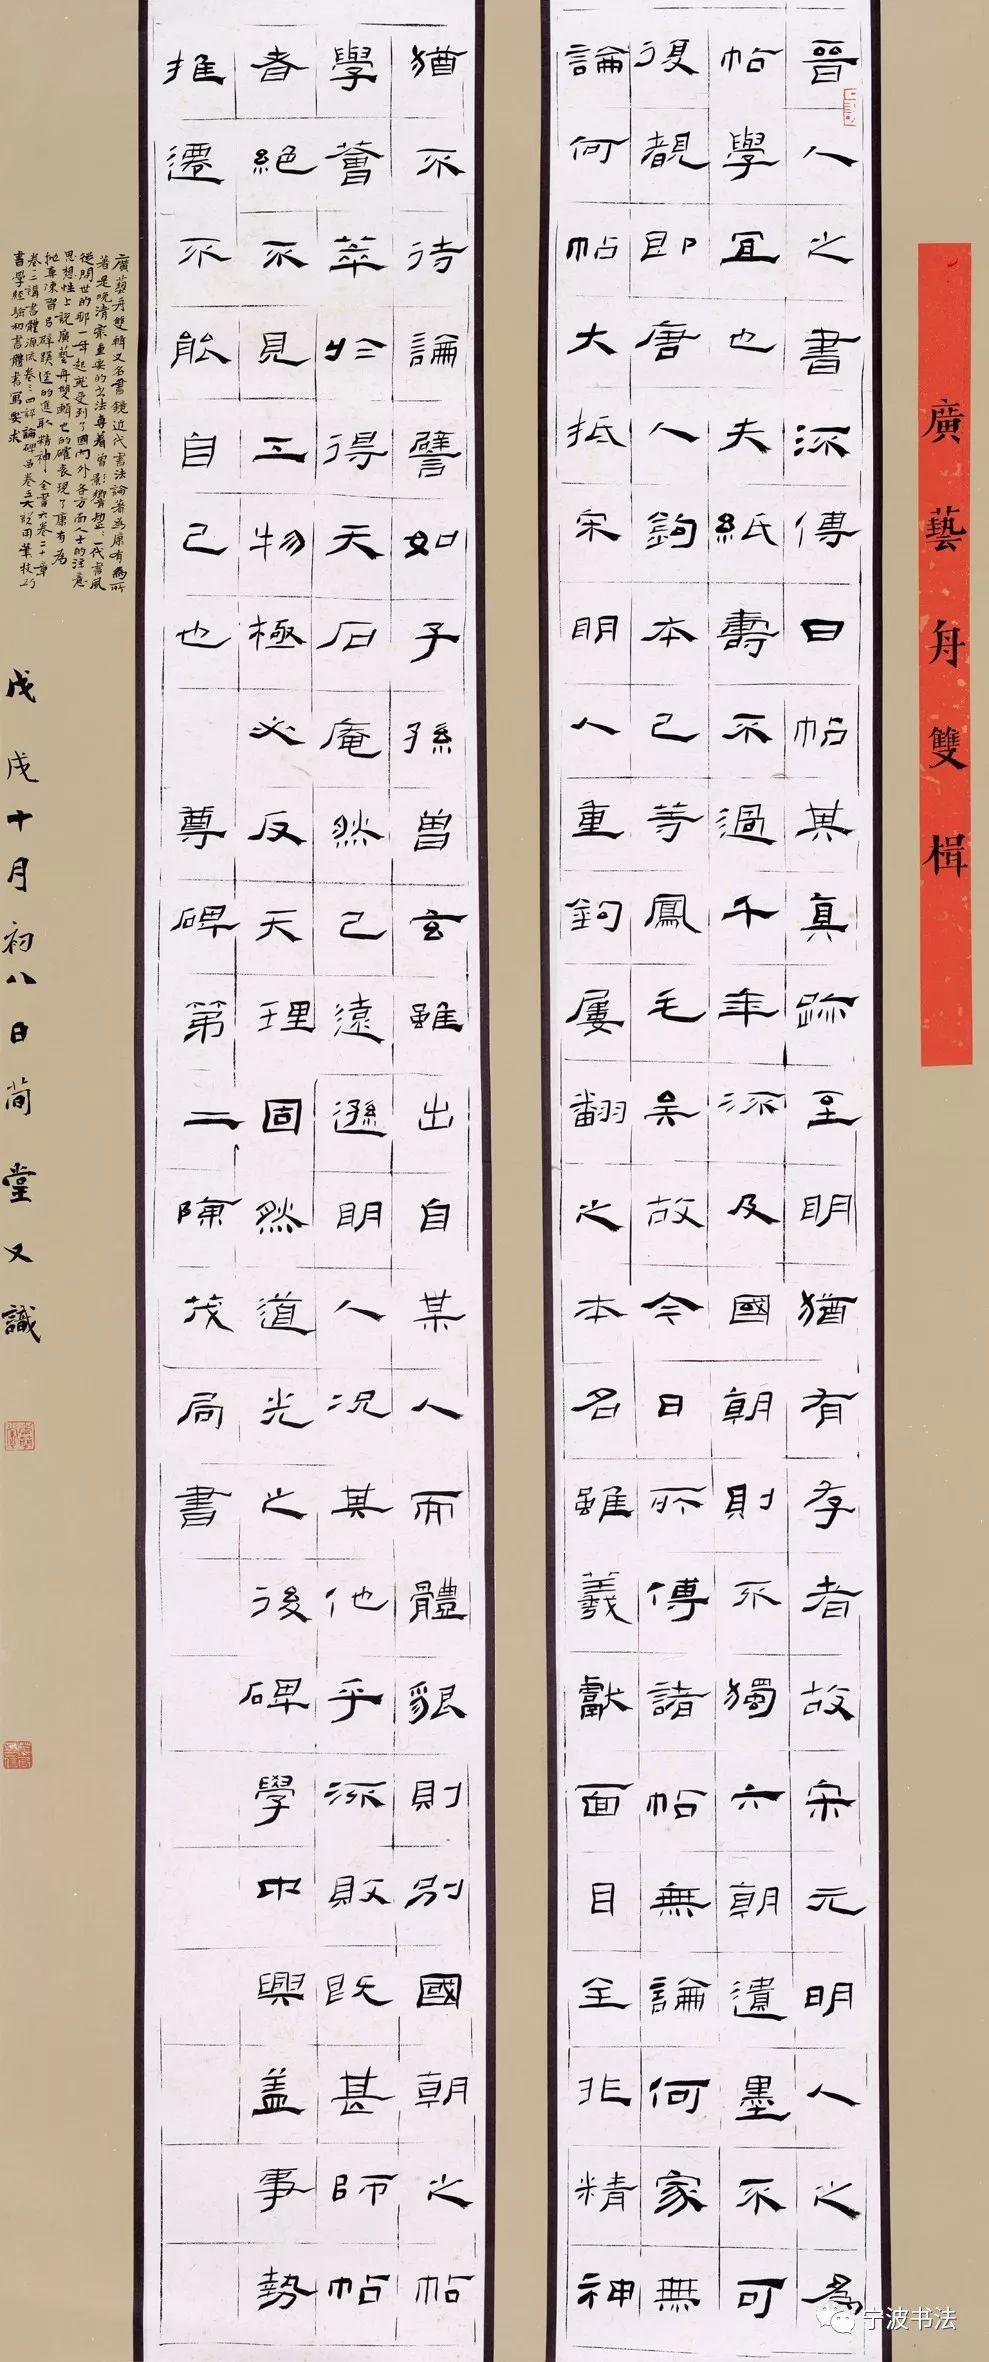 廣藝舟雙楫
晉人之書流傳曰帖其真跡至明猶有存者故宋元明人之為
帖學宜也夫紙壽不過千年流及國朝則不獨六朝遺墨不可
復覩即唐人鉤本已等鳳毛矣故今日所傳諸帖無論何家無
論何帖大抵宋明人重鉤屢翻之本名雖羲獻面目全非精神
猶不待論譬如子孫曾玄雖出自某人而體貌則別國朝之帖
學薈萃於得天石庵然已遠遜明人況其他乎流敗既甚師帖
者絕不見工物極必反天理固然道光之後碑學中興蓋事勢
推遷不能自已也 尊碑第二陳茂局書
廣藝舟雙輯又名書鏡近代書法論著為康有為所
著是晚清最重要的書法專著曾影響整一代書風
從問世的那一年起就受到了國內外各方面人士的注意
思想性上說廣藝舟雙輯也的確表現了康有為
蹊徑的進取精神全書六卷二十章
卷二講書體源流卷三四評論碑品卷五六說用筆技巧
書學經驗初書體書寫要求
戊戌十月初八日简堂又識
宁波书法